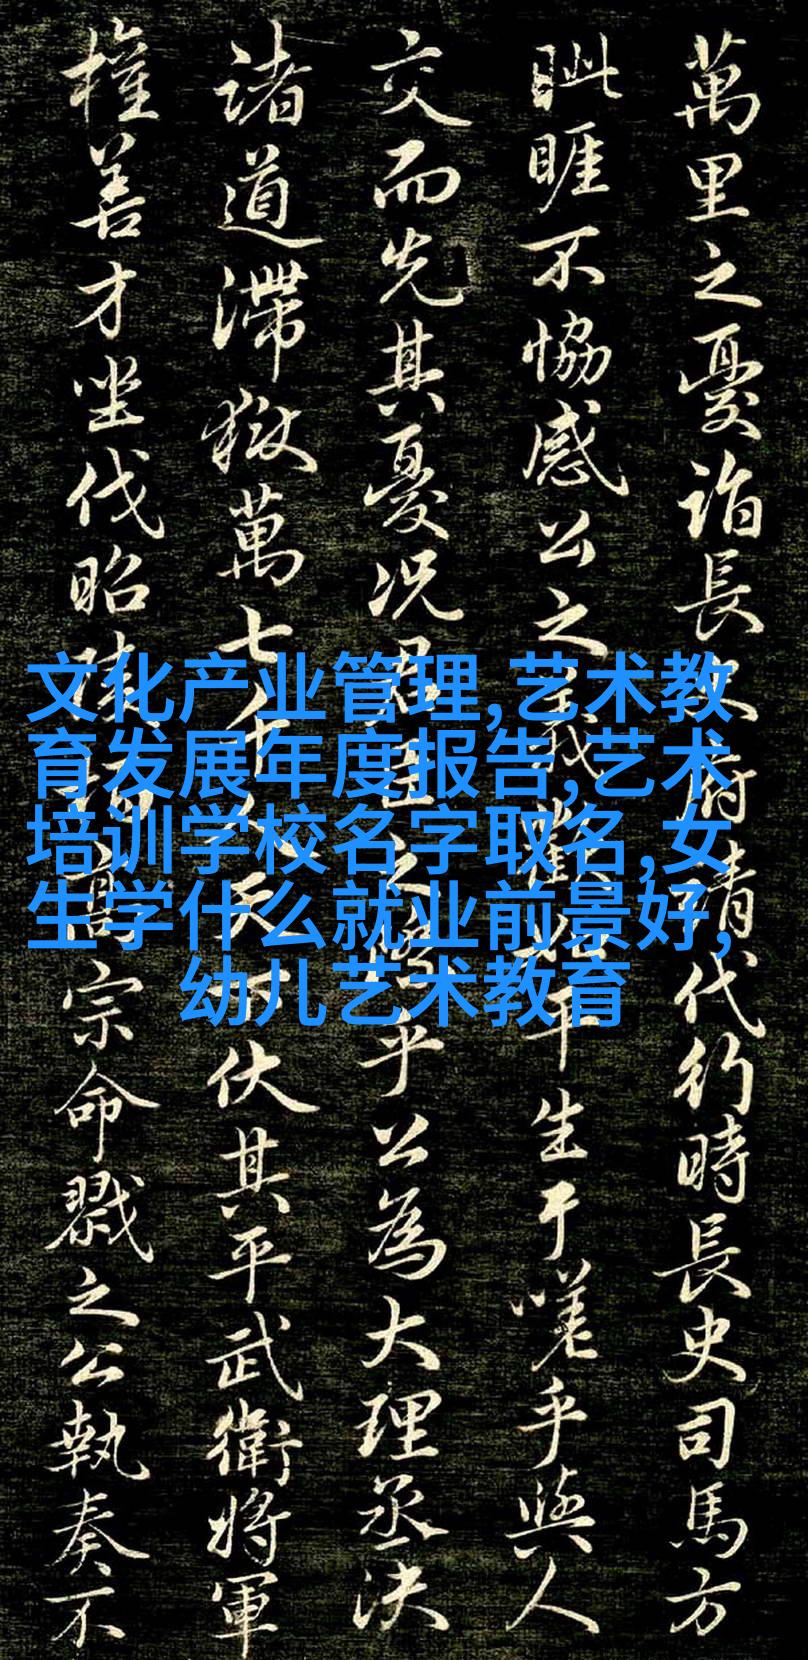 萬里之憂詣長史府請代行時長史司馬方
眦睚不協感公之義歡如平生于嗟乎與人
交而先其憂況君臣之際乎公為大理丞決
諸道滯獄萬七千人天下伏其平武衛將軍
權善才坐伐昭陵柏高宗命戮之公執奏不
文化产业管理,艺术教
育发展年度报告,艺术
培训学校名字取名,女
生学什么就业前景好,
幼儿艺术教育